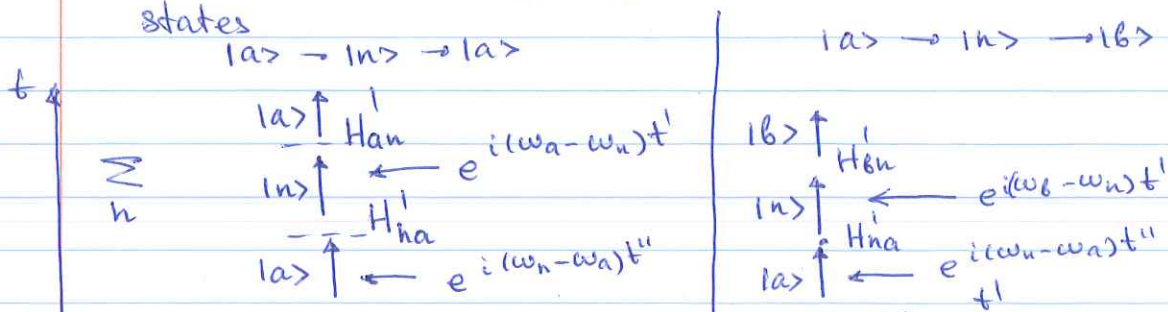 states
|a> → |n> → |a>
|a> → |n> → |b>
t
|a> H'an
e^{i(ωa-ωn)t'}
Σ
n
|n>
H'na
|a>
e^{i(ωn-ωa)t"}
|b> H'bn
e^{i(ωb-ωn)t'}
|n>
H'na
|a>
e^{i(ωn-ωa)t"}
t'